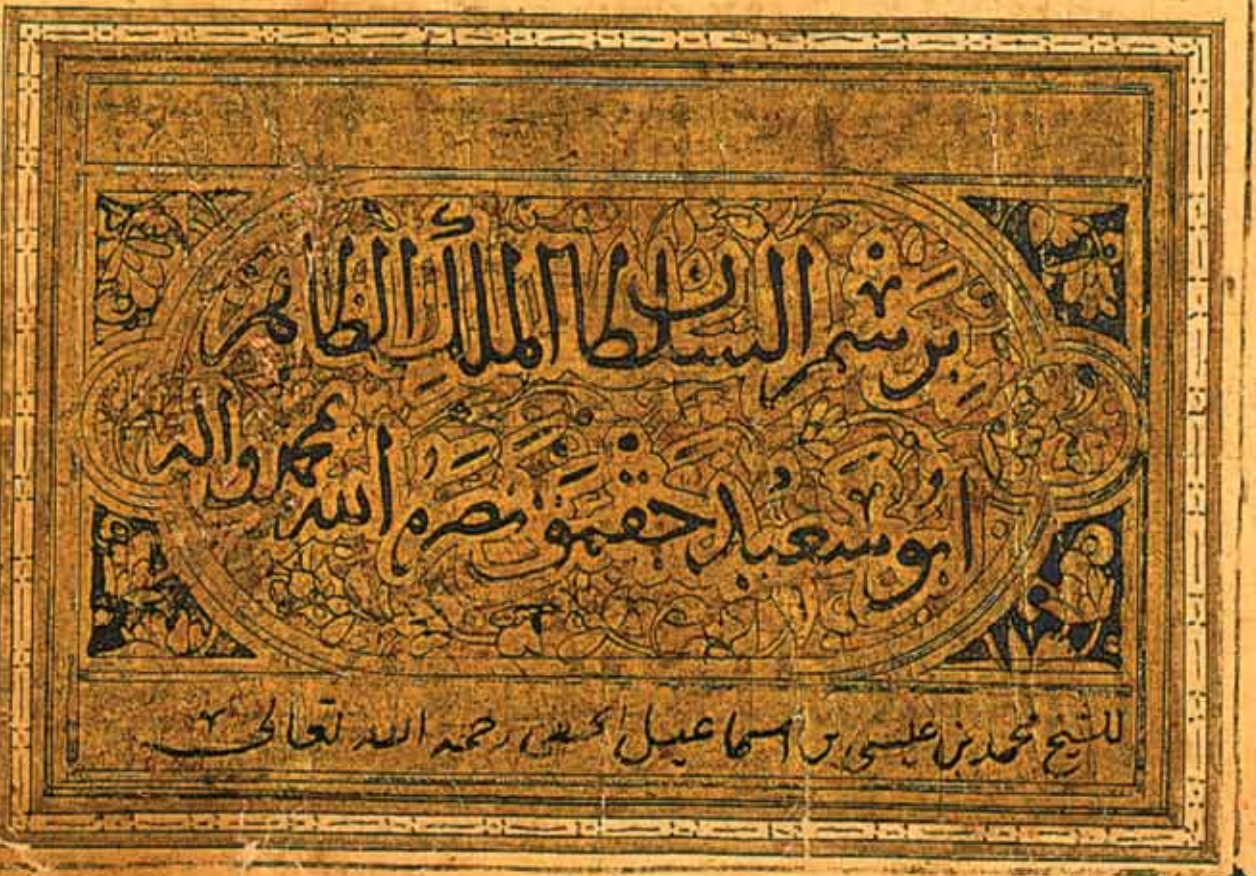 برسم السلطان الملك الظاهر
ابو سعيد جقمق نصره الله بمحمد واله
للشيخ محمد بن عيسى بن اسماعيل الحنفي رحمه الله تعالى